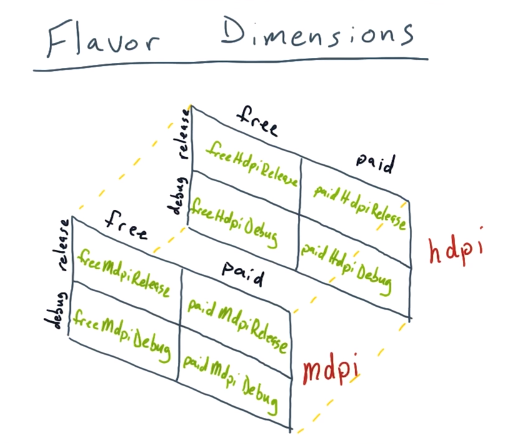 Flavor Dimensions
free
paid
release
freeHdpiRelease
paidHdpiRelease
debug
freeHdpiDebug
paidHdpiDebug
hdpi
free
paid
release
freeMdpiRelease
paidMdpiRelease
debug
freeMdpiDebug
paidMdpiDebug
mdpi